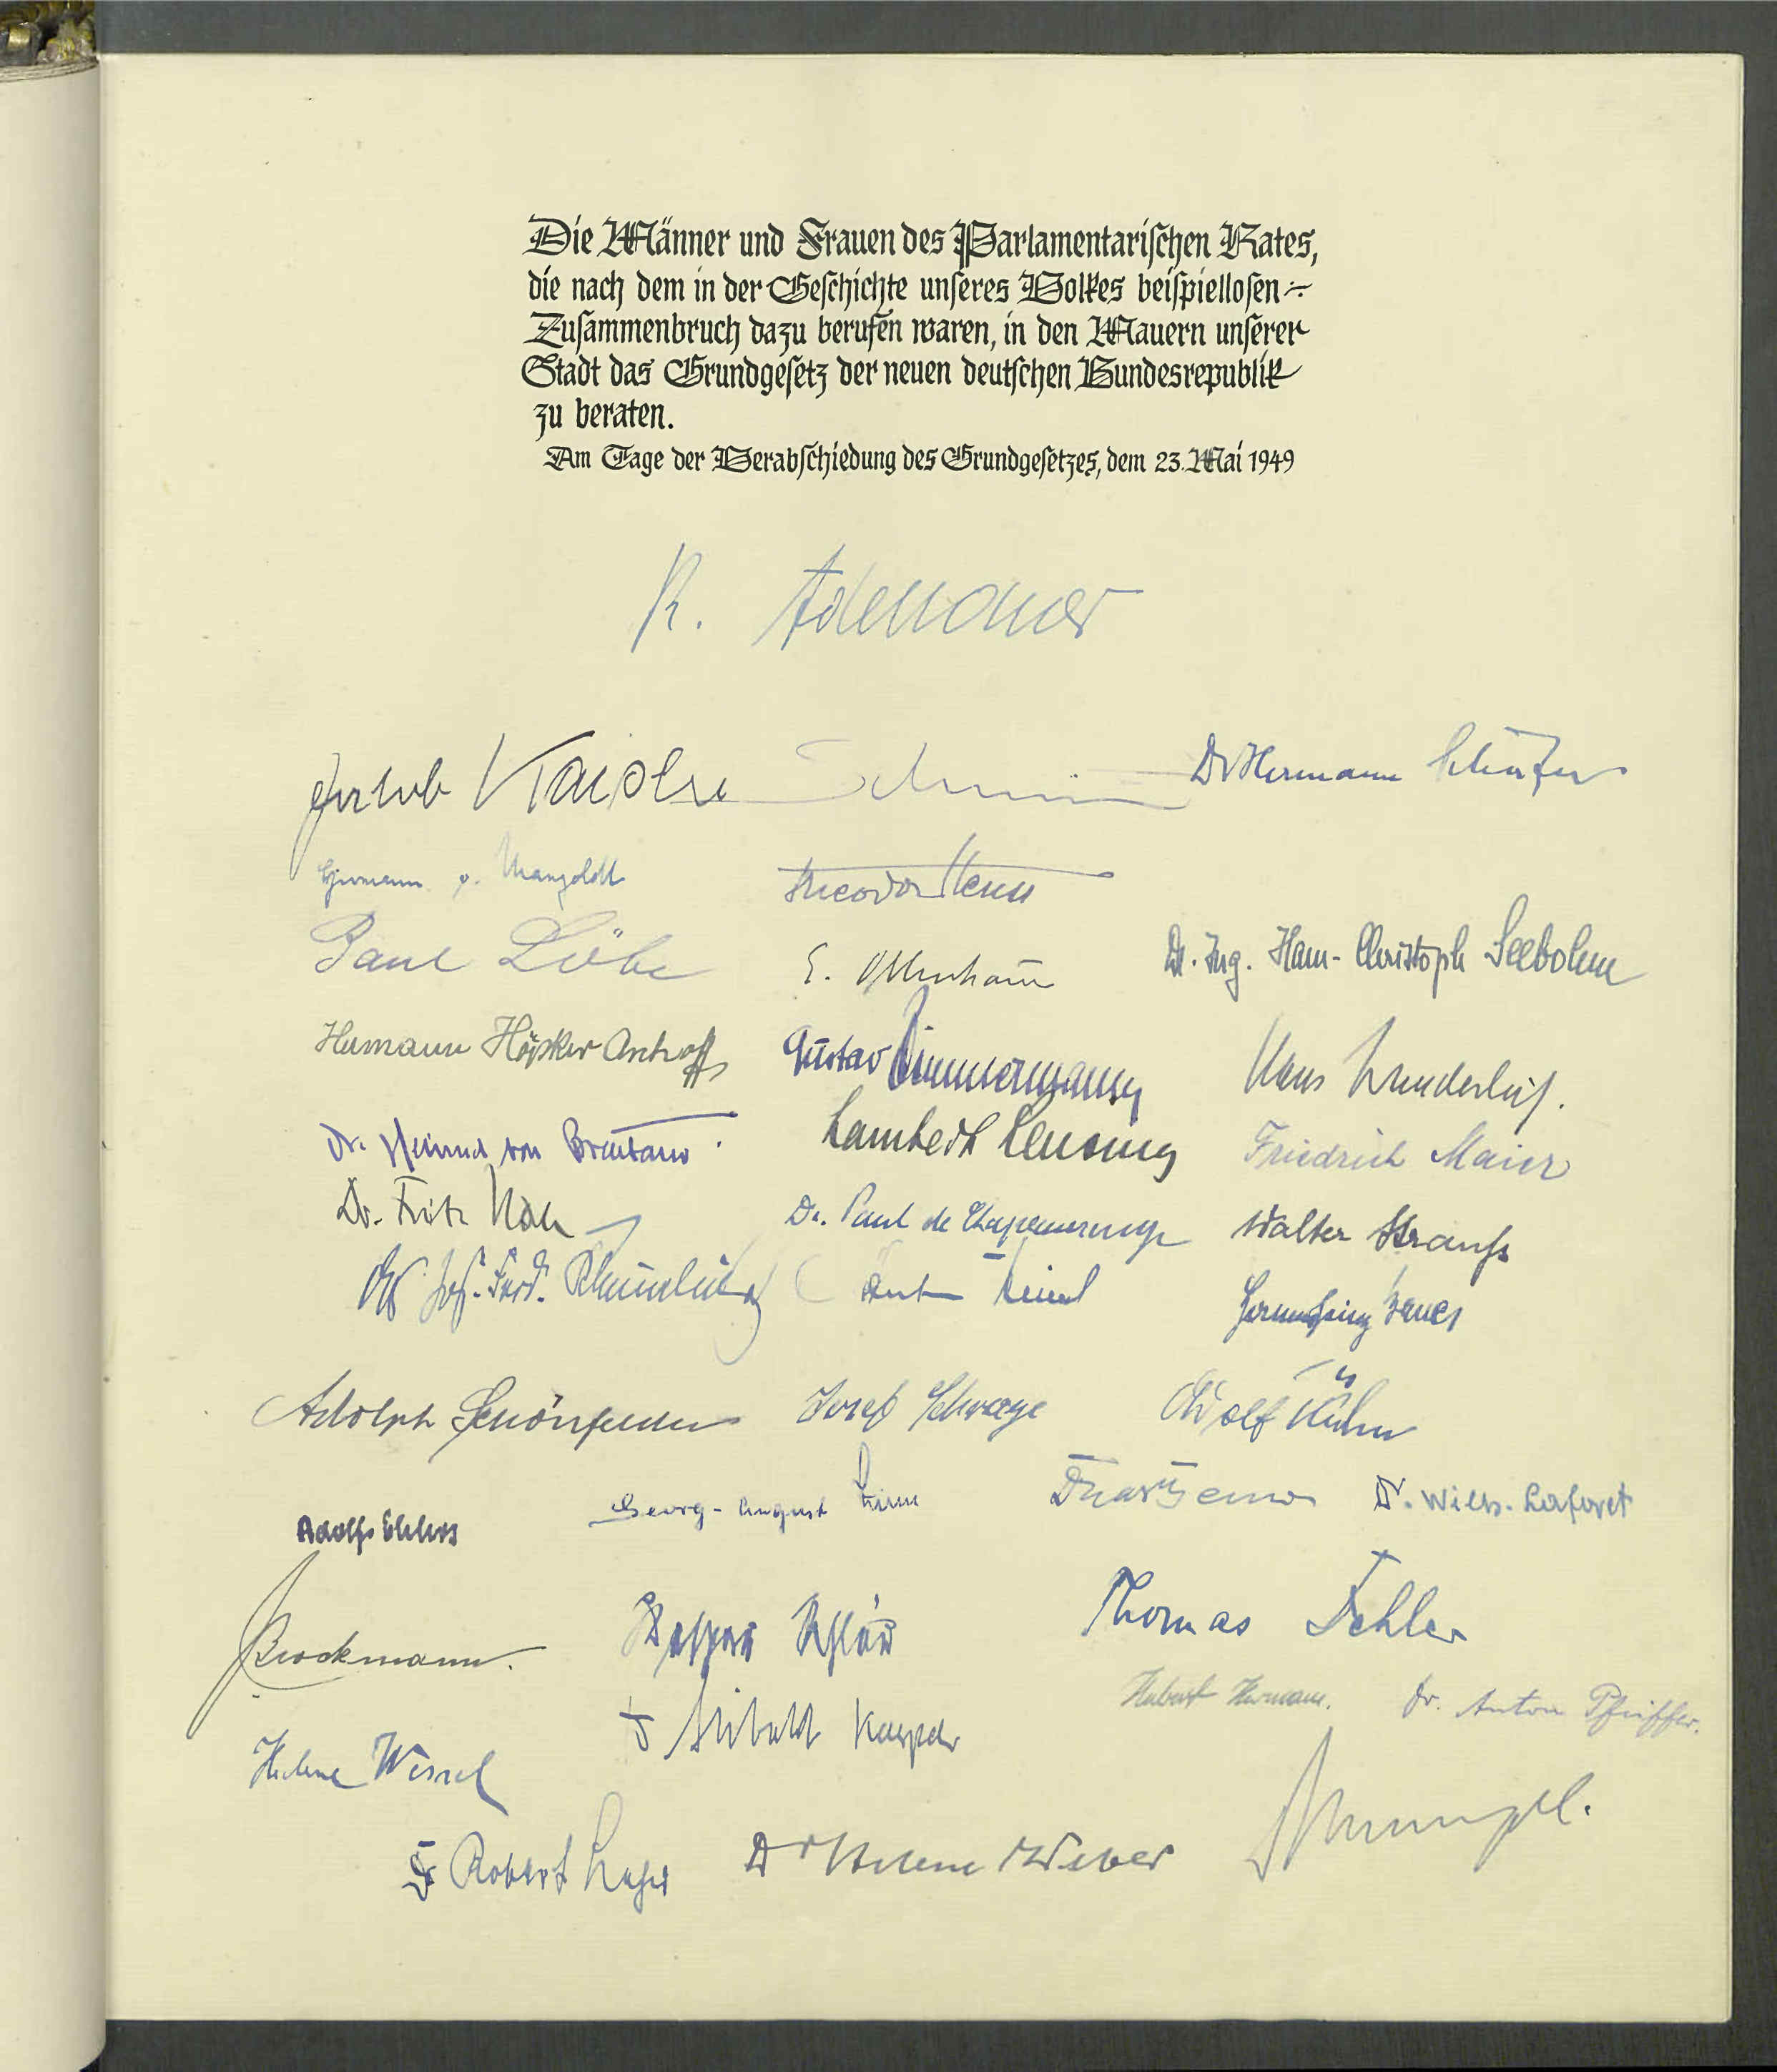 Die Männer und Frauen des Parlamentarischen Rates,
die nach dem in der Geschichte unseres Volkes beispiellosen
Zusammenbruch dazu berufen waren, in den Mauern unserer
Stadt das Grundgesetz der neuen deutschen Bundesrepublik
zu beraten.
Am Tage der Verabschiedung des Grundgesetzes, dem 23. Mai 1949
K. Adenauer
Jakob Kaiser Dr Hermann Schäfer
Hermann v. Mangoldt Theodor Heuss
Paul Löbe E. Ollenhauer Dr. Ing. Hans-Christoph Seebohm
Hermann Höpker Aschoff Gustav Zimmermann Hans Wunderlich.
Dr. Heinrich von Brentano Lambert Lensing Friedrich Maier
Dr. Fritz Dr. Paul de Chapeaurouge Walter Strauß
Adolph Schönfelder Josef Schrage Adolf Kühn
Adolf Ehlers Georg-August Zinn Dr. Wilh. Laforet
Brockmann. Kaspar Thomas Dehler
Dr. Anton Pfeiffer.
Helene Wessel
Dr Robert Lehr Dr Helene Weber